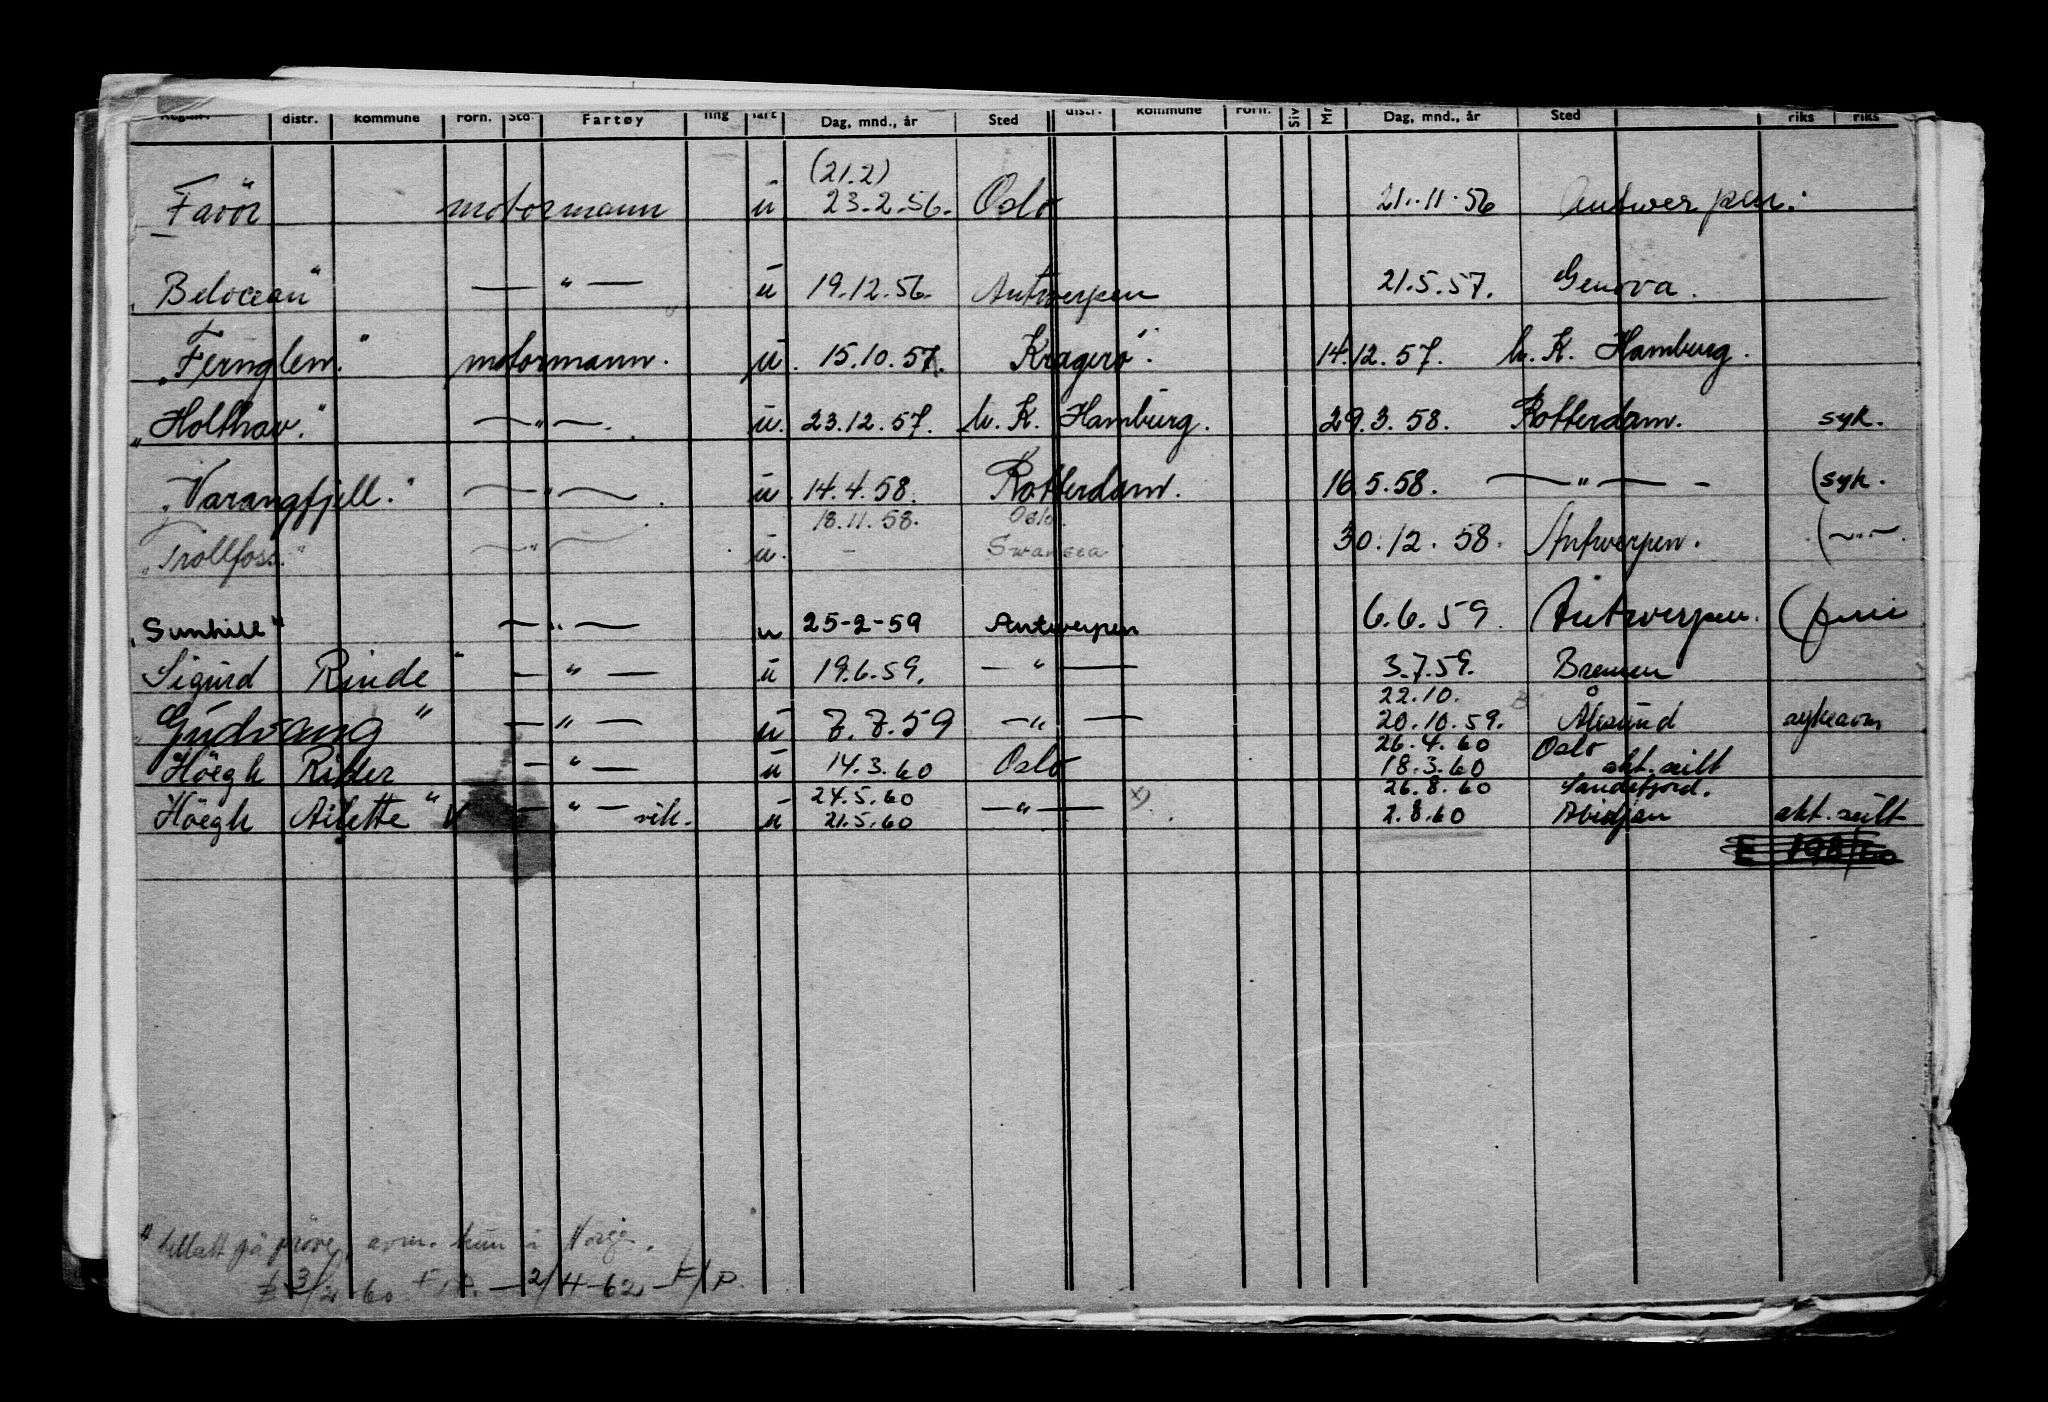 distr. kommune Forn. Std. Fartøy ning fart Dag, mnd., år Sted distr. kommune Forn. Siv Mr Dag, mnd., år Sted riks riks
(21.2)
Favör motormann u 23.2.56. Oslo 21.11.56 Antwerpen.
"Belocean" — " — u 19.12.56. Antwerpen 21.5.57. Genova.
"Fernglen." motormann. u. 15.10.57. Kragerö. 14.12.57. h. K. Hamburg.
"Holthav." — " —. u. 23.12.57. h. K. Hamburg. 29.3.58. Rotterdam. syk.
"Varangfjell." — " —. u. 14.4.58. Rotterdam. 16.5.58. — " — - (syk.
18.11.58. Oslo.
"Trollfoss." — " — u. - Swansea 30.12.58. Antwerpen. (—"—.
"Sunhill" — " — u 25-2-59 Antwerpen 6.6.59. Antwerpen. (
Sigurd Rinde" — " — u 19.6.59. — " — 3.7.59. Bremen
22.10.
"Gudvang" — " — u 7.7.59 — " — 20.10.59. Ålesund sykeavm
26.4.60 Oslo
Höegh Ridder — " — u 14.3.60 Oslo 18.3.60 akt. seilt
24.5.60 26.8.60 Sandefjord.
Höegh Ailette" V — " — vik. u 21.5.60 — " — x) 2.8.60 Abidjan akt. seilt
tillatt på prøve, avm. kun i Norge.
3/2 60 F/P. — 2/4-62 — F/P.